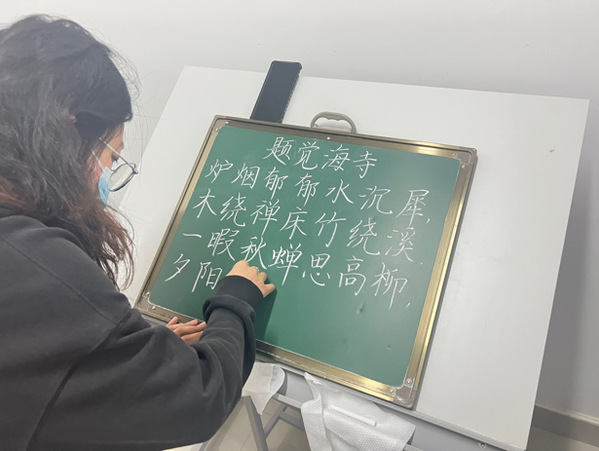 题觉海寺
炉烟郁郁水沉犀，
木绕禅床竹绕溪
一暇秋蝉思高柳，
夕阳